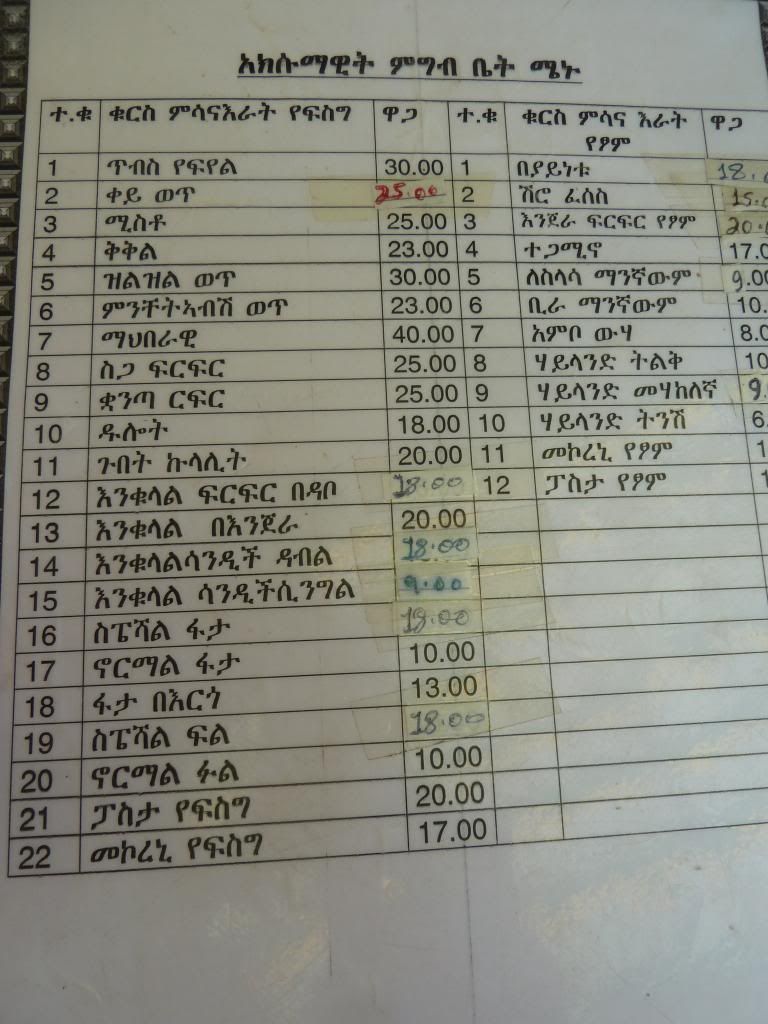 አክሱማዊት ምግብ ቤት ሜኑ
ተ.ቁ ቁርስ ምሳናእራት የፍስግ ዋጋ ተ.ቁ ቁርስ ምሳና እራት የፆም ዋጋ
1 ጥብስ የፍየል 30.00 1 በያይነቱ 18.
2 ቀይ ወጥ 25.00 2 ሽሮ ፈሰስ 15.
3 ሚስቶ 25.00 3 እንጀራ ፍርፍር የፆም 20.
4 ቅቅል 23.00 4 ተጋሚኖ 17.0
5 ዝልዝል ወጥ 30.00 5 ለስላሳ ማንኛውም 9.00
6 ምንቸትኣብሽ ወጥ 23.00 6 ቢራ ማንኛውም 10.
7 ማህበራዊ 40.00 7 አምቦ ውሃ 8.0
8 ስጋ ፍርፍር 25.00 8 ሃይላንድ ትልቅ 10
9 ቋንጣ ርፍር 25.00 9 ሃይላንድ መሃከለኛ 9.
10 ዱሎት 18.00 10 ሃይላንድ ትንሽ 6.
11 ጉበት ኩላሊት 20.00 11 መኮረኒ የፆም 1
12 እንቁላል ፍርፍር በዳቦ 18.00 12 ፓስታ የፆም 1
13 እንቁላል በእንጀራ 20.00
14 እንቁላልሳንዲች ዳብል 18.00
15 እንቁላል ሳንዲችሲንግል 9.00
16 ስፔሻል ፋታ 18.00
17 ኖርማል ፋታ 10.00
18 ፋታ በእርጎ 13.00
19 ስፔሻል ፍል 18.00
20 ኖርማል ፉል 10.00
21 ፓስታ የፍስግ 20.00
22 መኮረኒ የፍስግ 17.00